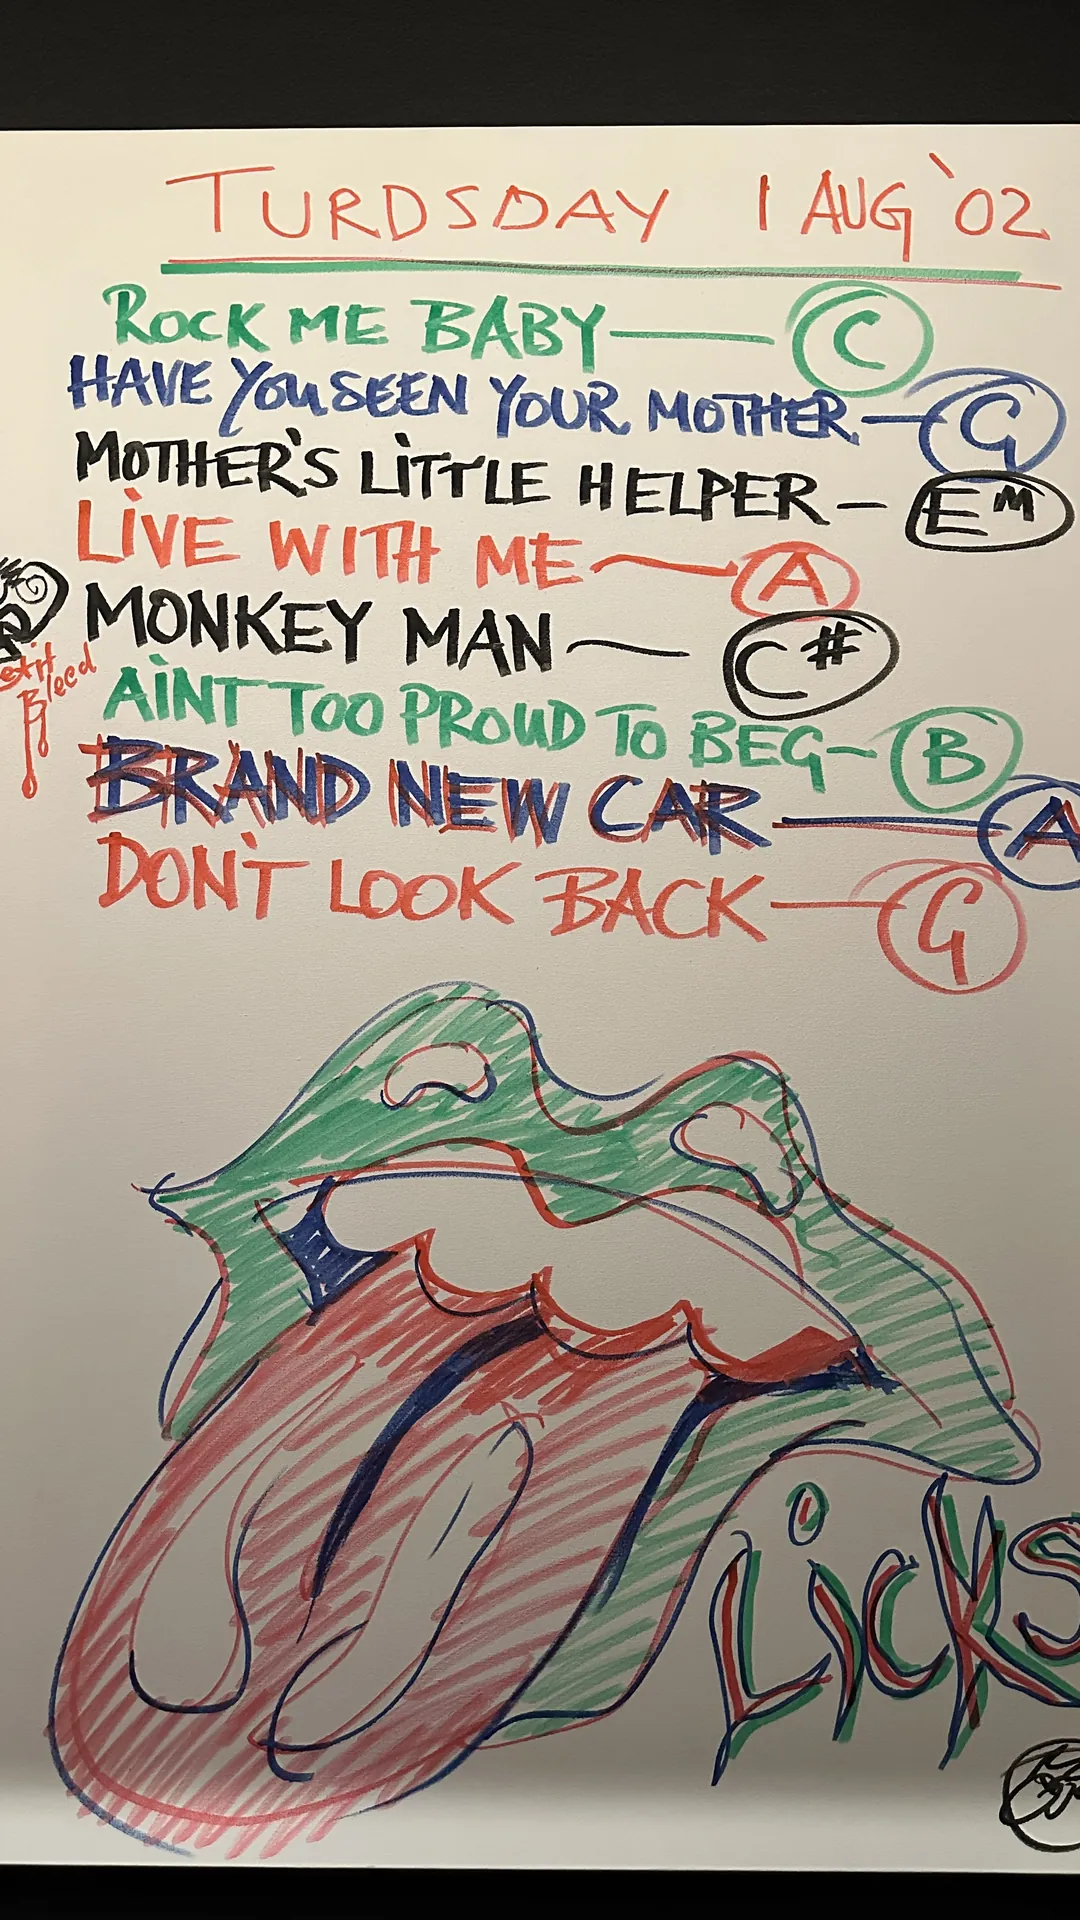 TURDSDAY 1 AUG '02
ROCK ME BABY — C
HAVE YOU SEEN YOUR MOTHER — G
MOTHER'S LITTLE HELPER — EM
LIVE WITH ME — A
MONKEY MAN — C#
AIN'T TOO PROUD TO BEG — B
BRAND NEW CAR — A
DON'T LOOK BACK — G
Bleed
Licks